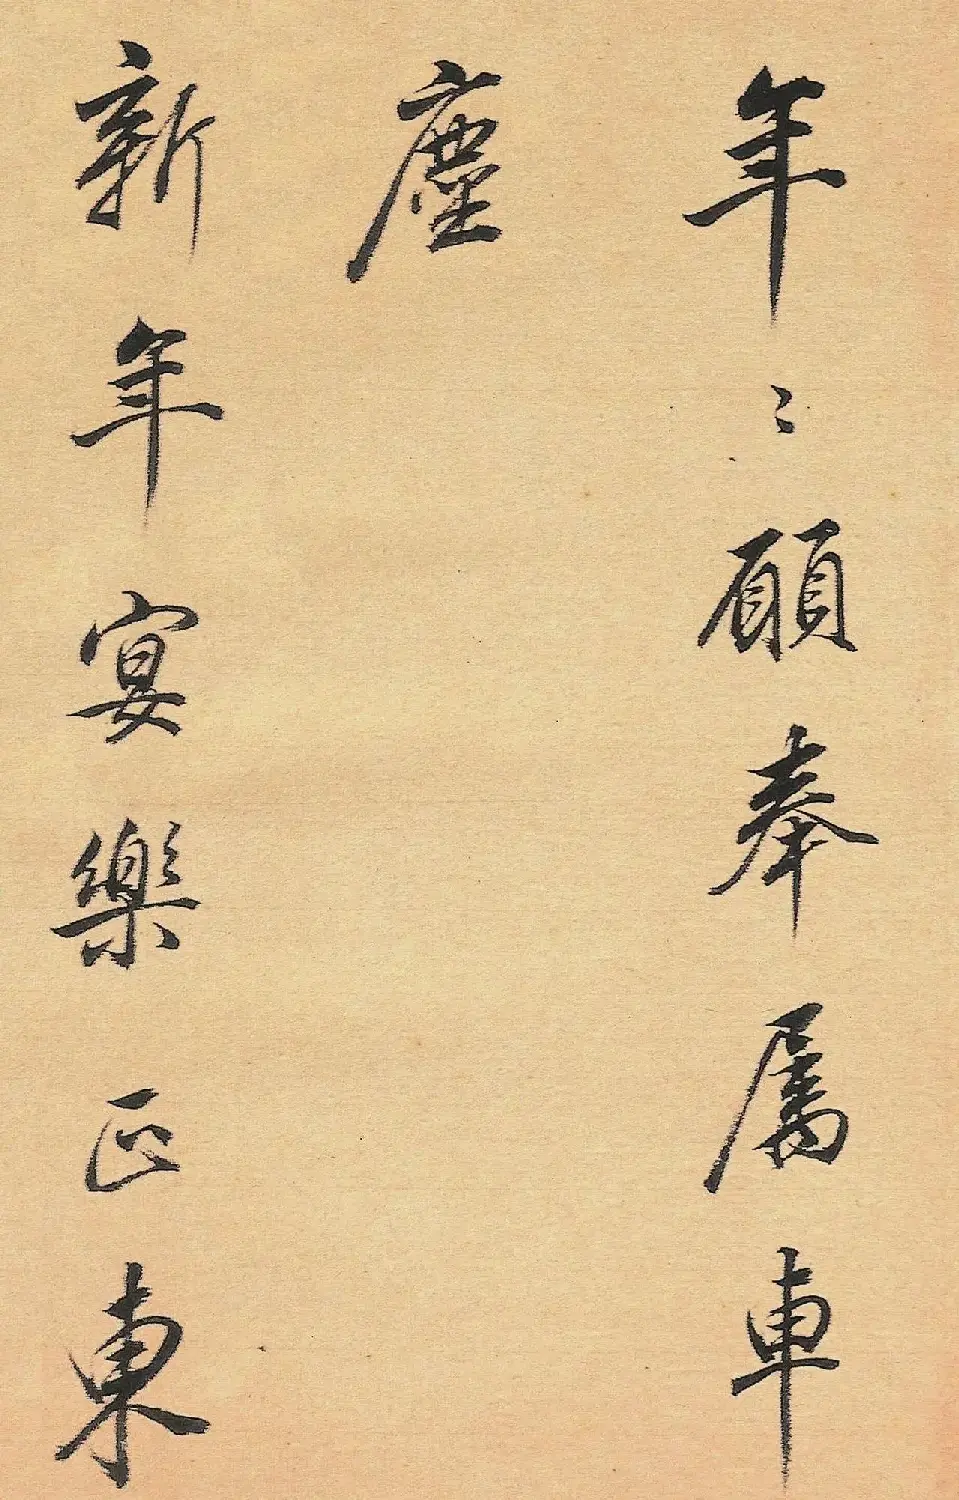 年〻願奉属車
塵
新年宴樂正東